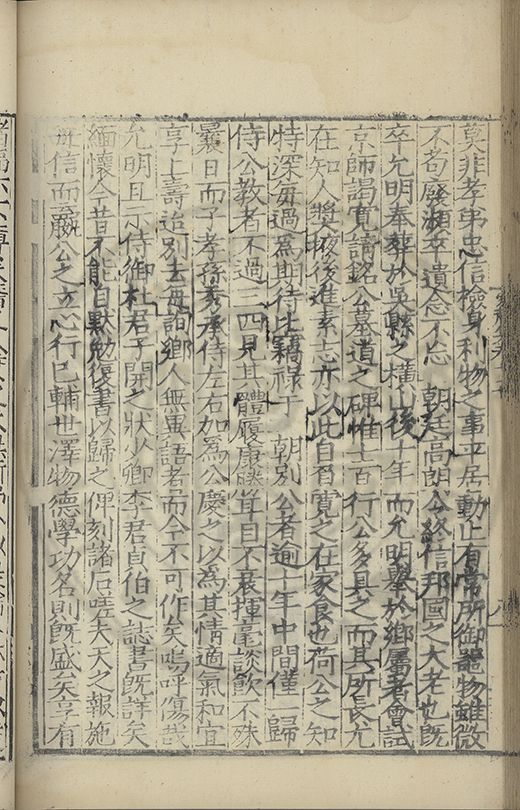 莫非孝弟忠信檢身利物之事平居動止有常所御器物雖微
不苟廢瀕卒遺念不忘 朝廷高朗令終信邦國之大老也既
卒允明奉葬於吳縣之橫山後十年而允明舉於鄉屬者會試
京師謁寬請銘公墓道之碑惟士百行公多具之而其所長尤
在知人獎掖後進素志亦以此自。寬之在家食也荷公之知
特深每過為期待比竊祿于 朝別公者逾十年中間僅一歸
侍公教者不過三四見其體履康勝耳目不衰揮毫談飲不殊
曩日而子孝孫秀承侍左右加為公慶之以為其情適氣和宜
享上壽迨別去每詢鄉人無異語者而今不可作矣嗚呼傷哉
允明且示侍御杜君子開之狀少卿李君貞伯之誌書既詳矣
緬懷今昔不能自默勉復書以歸之俾刻諸石嗟夫天之報施
毋信而嬴公之立心行己輔世澤物德學功名則既盛矣享有